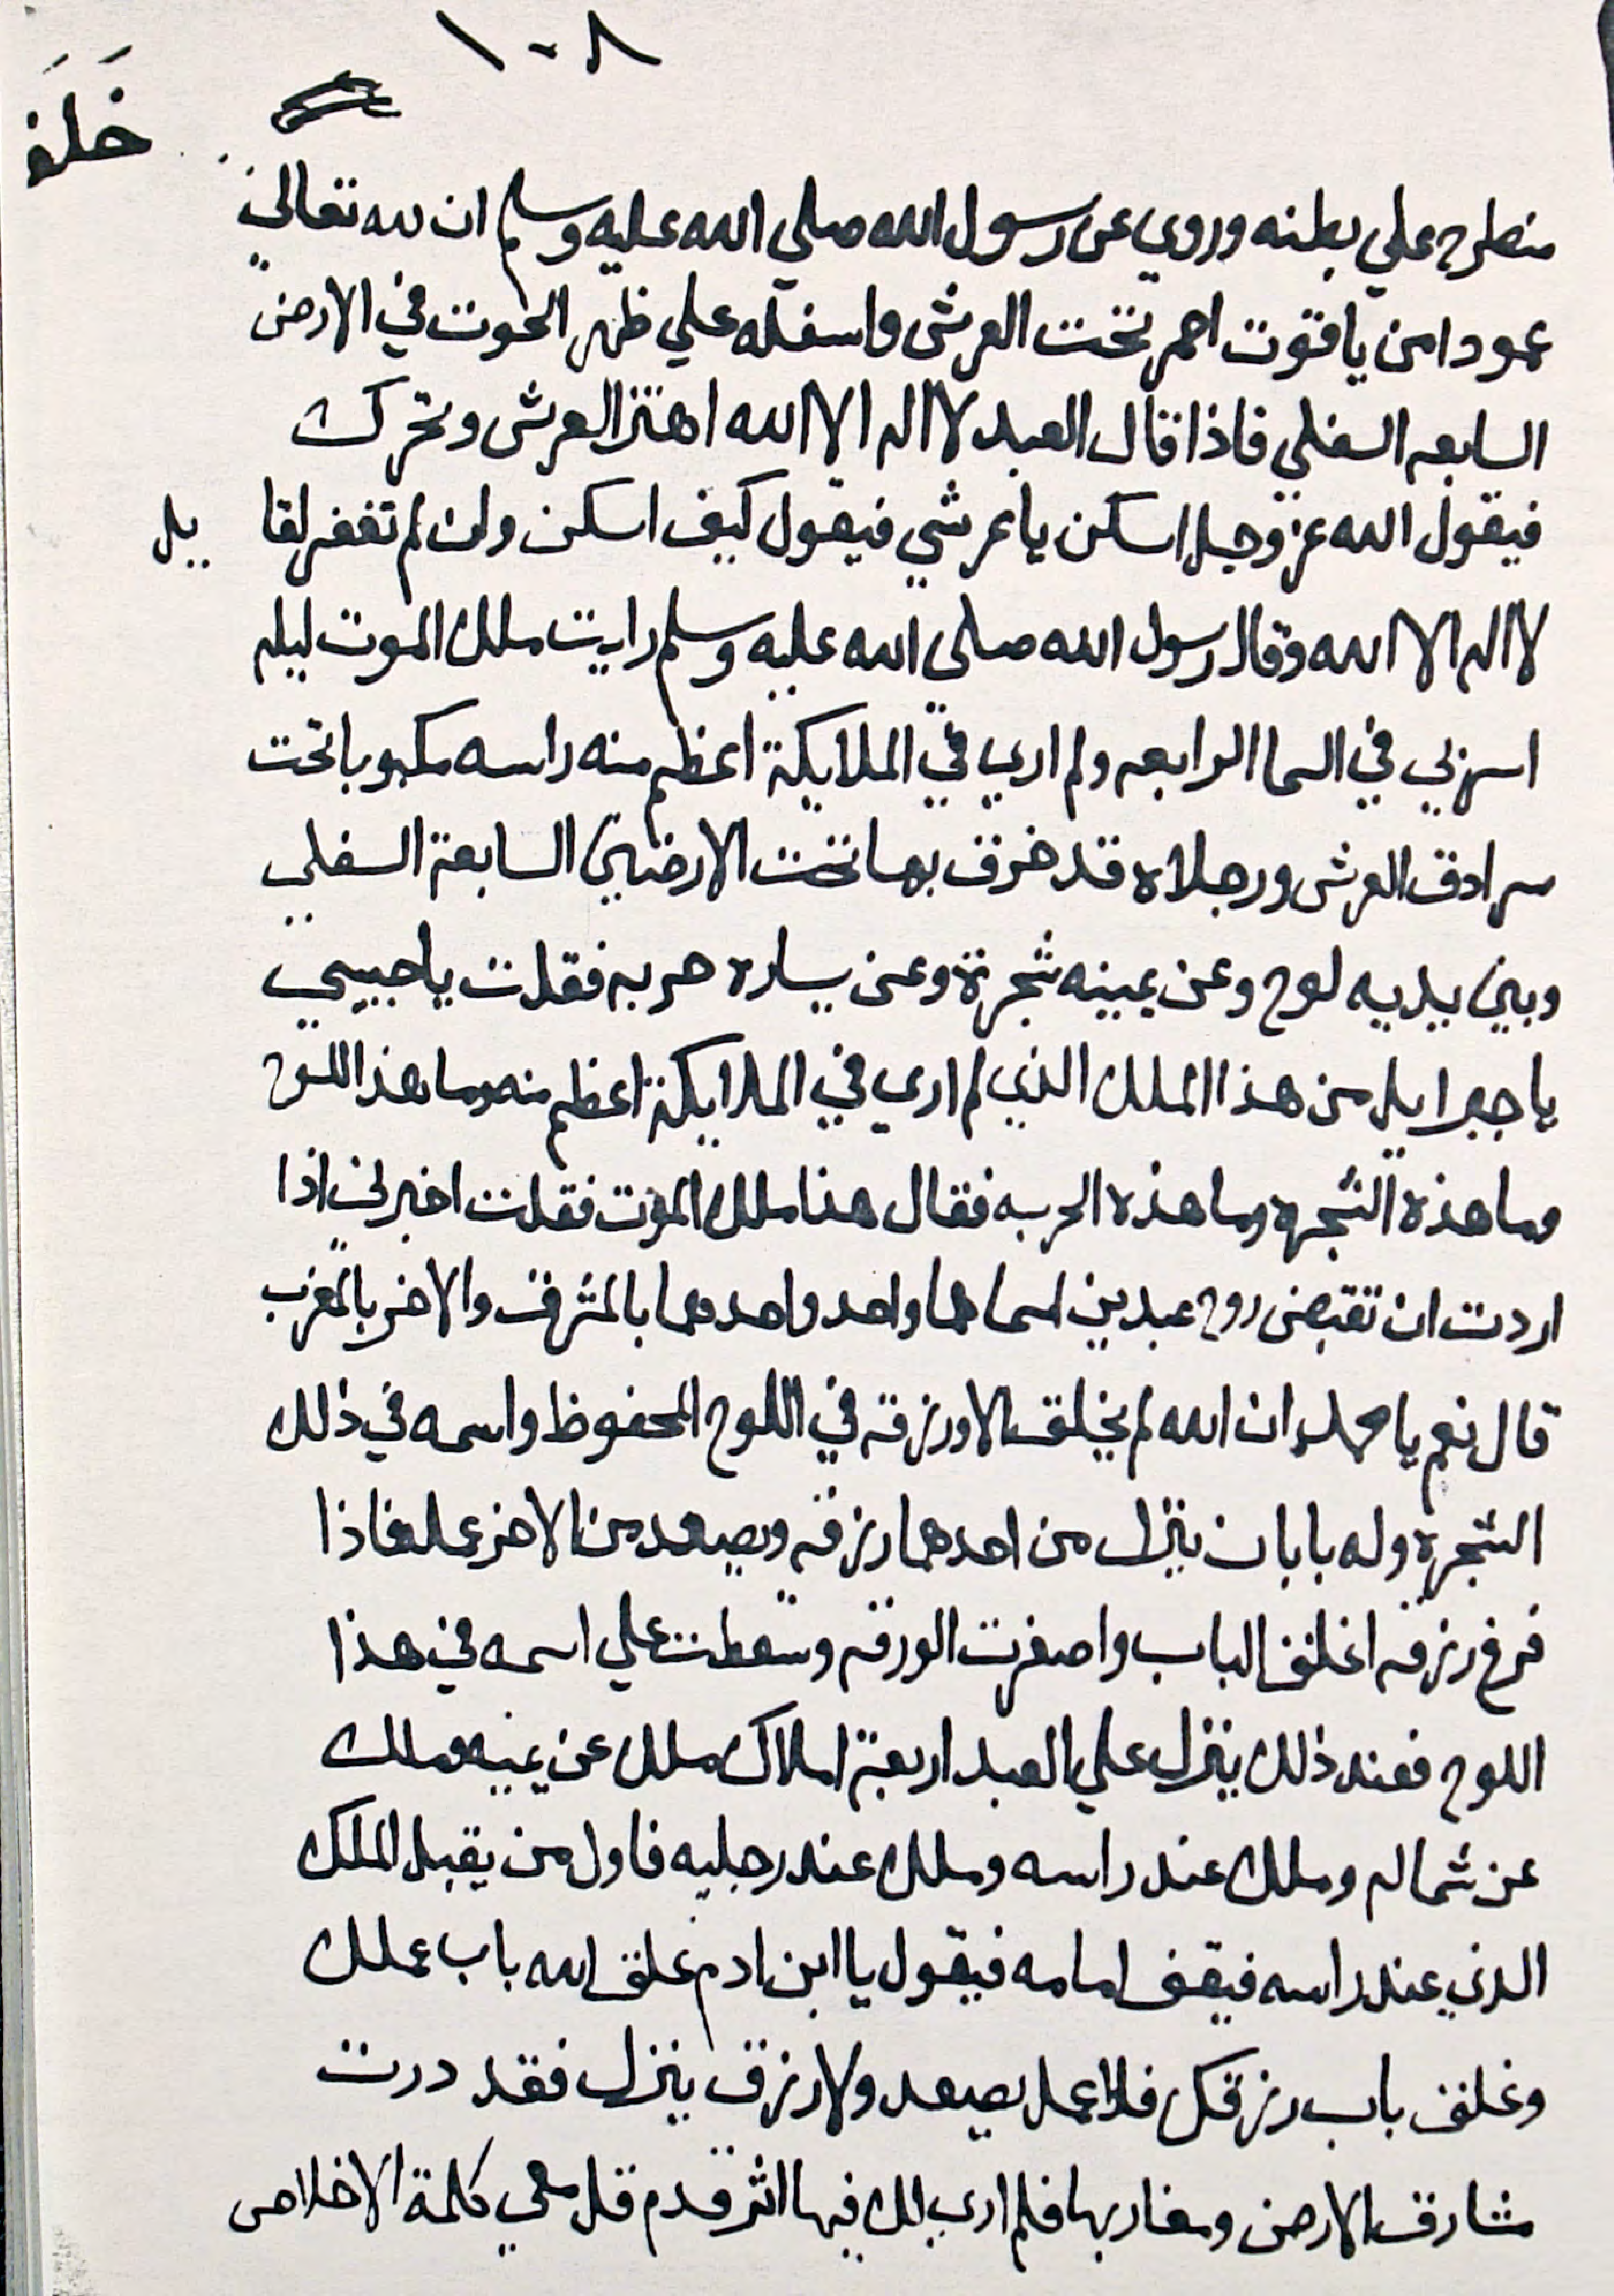 ١٠٨
خَلَف
منطرح علي بطنه وروي عن رسول الله صلي الله عليه وسلم ان لله تعالي
عمودا من ياقوت احمر تحت العرش واسفله علي ظهر الحوت في الارض
السابعه السفلي فاذا قال العبد لا اله الا الله اهتز العرش وتحرك
فيقول الله عز وجل اسكن يا عرشي فيقول كيف اسكن ولن لم تغفر لقا يل
لا اله الا الله وقال رسول الله صلي الله عليه وسلم رايت ملك الموت ليله
اسري بي في السما الرابعه ولم اري في الملايكة اعظم منه راسه مكبوبا تحت
سرادق العرش ورجلاه قد خرق بهما تحت الارضين السابعة السفلي
وبين يديه لوح وعن يمينه شجرة وعن يساره حربه فقلت يا حبيبي
يا جبرايل من هذا الملك الذي لم اري في الملايكة اعظم منه وما هذا اللوح
وما هذه الشجره وما هذه الحربه فقال هذا ملك الموت فقلت اخبرني اذا
اردت ان تقبض روح عبدين اسماهما واحد واحدهما بالمشرق والاخر بالمغرب
قال نعم يا محمد ان الله لم يخلق الا ورزقه في اللوح المحفوظ واسمه في ذلك
الشجره وله بابان ينزل من احدهما رزقه ويصعد من الاخر عمله فاذا
فرغ رزقه اغلق الباب واصفرت الورقه وسقطت علي اسمه في هذا
اللوح فعند ذلك ينزل علي العبد اربعة املاك ملك عن يمينه وملك
عن شماله وملك عند راسه وملك عند رجليه فاول من يقبل الملك
الذي عند راسه فيقف امامه فيقول يا ابن ادم غلق الله باب عملك
وغلق باب رزقك فلا عمل يصعد ولا رزق ينزل فقد درت
مشارق الارض ومغاربها فلم اري لك فيها اثر قدم قل معي كلمة الاخلاص